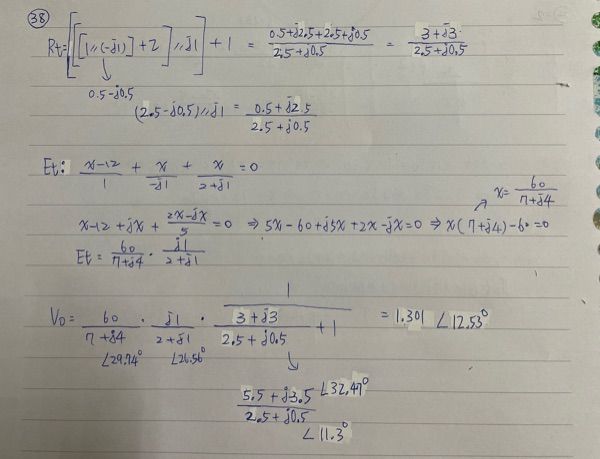 38
Rt = [[[1 // (-j1)] + 2] // j1] + 1 = (0.5+j2.5+2.5+j0.5)/(2.5+j0.5) = (3+j3)/(2.5+j0.5)
0.5-j0.5
(2.5-j0.5) // j1 = (0.5+j2.5)/(2.5+j0.5)
Et: (x-12)/1 + x/(-j1) + x/(2+j1) = 0
x = 60/(7+j4)
x-12+jx+(2x-jx)/5 = 0 ⇒ 5x-60+j5x+2x-jx=0 ⇒ x(7+j4)-60=0
Et = 60/(7+j4) · j1/(2+j1)
Vo = 60/(7+j4) · j1/(2+j1) · 1/((3+j3)/(2.5+j0.5) + 1) = 1.301 ∠12.53°
∠29.74° ∠26.56°
(5.5+j3.5)/(2.5+j0.5) ∠32.47°
∠11.3°